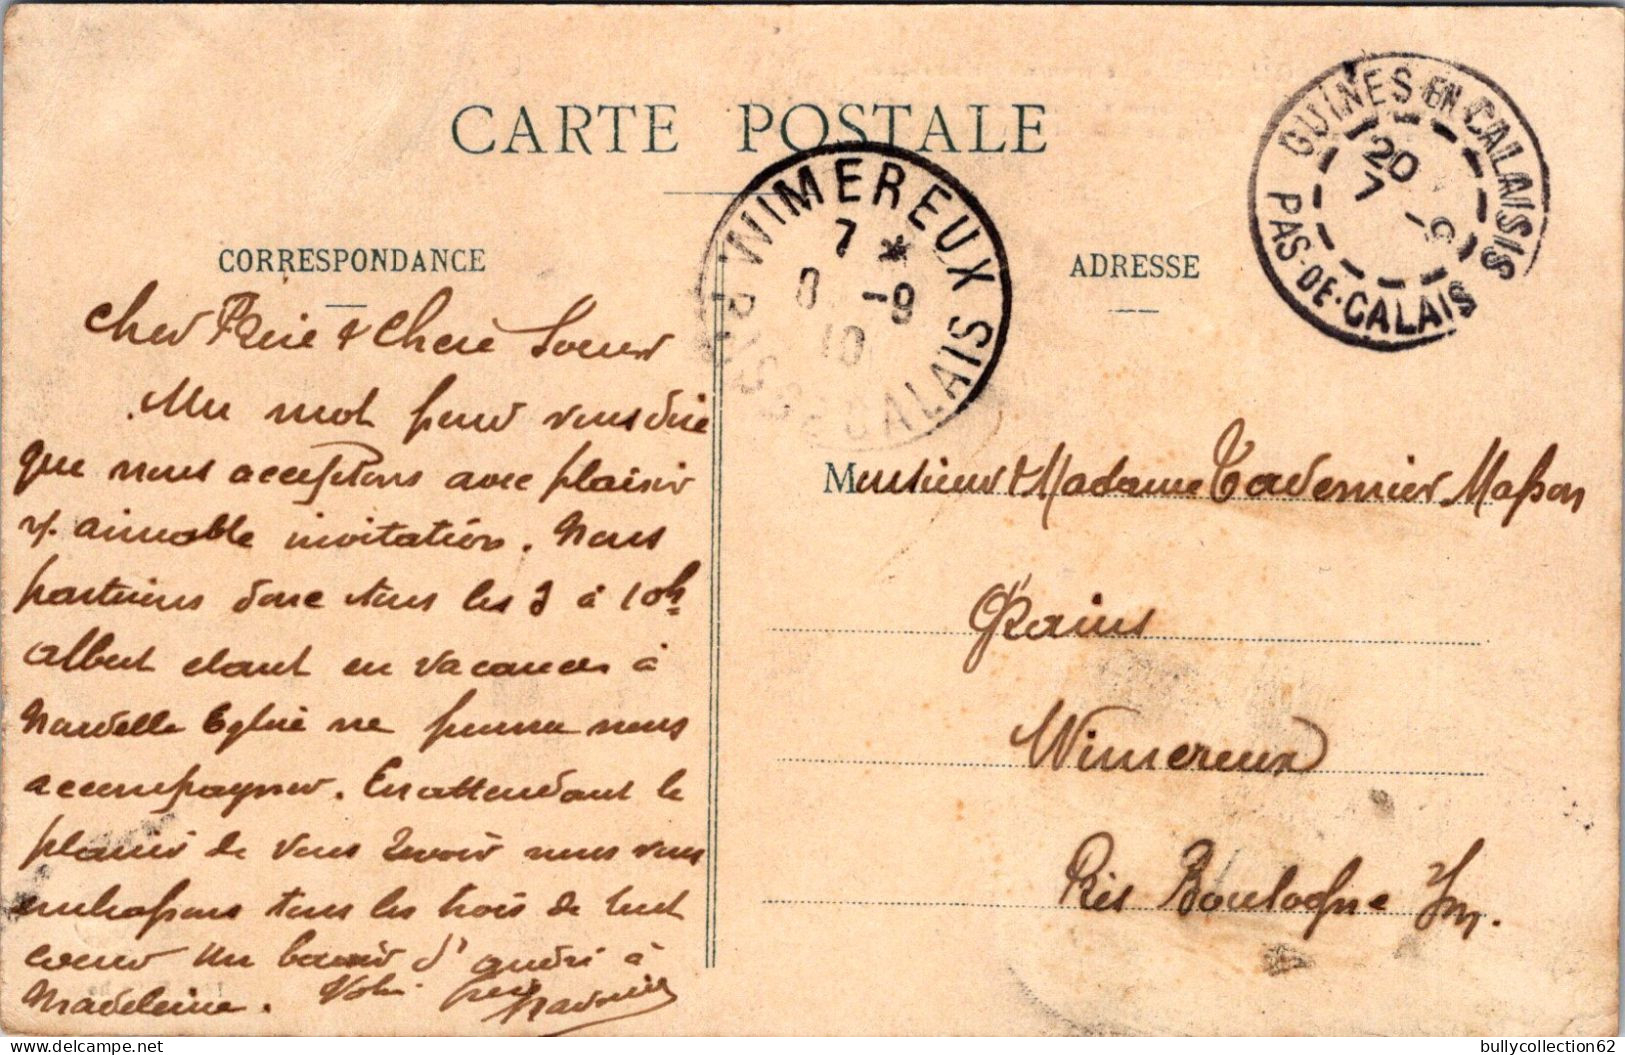 CARTE POSTALE
CORRESPONDANCE
ADRESSE
GUINES-EN-CALAISIS
20
7 -9
PAS-DE-CALAIS
WIMEREUX
7 *
8 -9
10
PAS DE CALAIS
Cher Frère & Chère Soeur
Un mot pour vous dire
que nous acceptons avec plaisir
v. aimable invitation. Nous
partirons donc tous les 3 à 10h
Albert étant en vacances à
Nouvelle Eglise ne pourra nous
accompagner. En attendant le
plaisir de vous revoir nous vous
embrassons tous les trois de tout
coeur Un baiser d'André à
Madeleine. Votre frère
Monsieur & Madame Tavernier Masson
Grains
Wimereux
Près Boulogne s/m.
bullycollection62